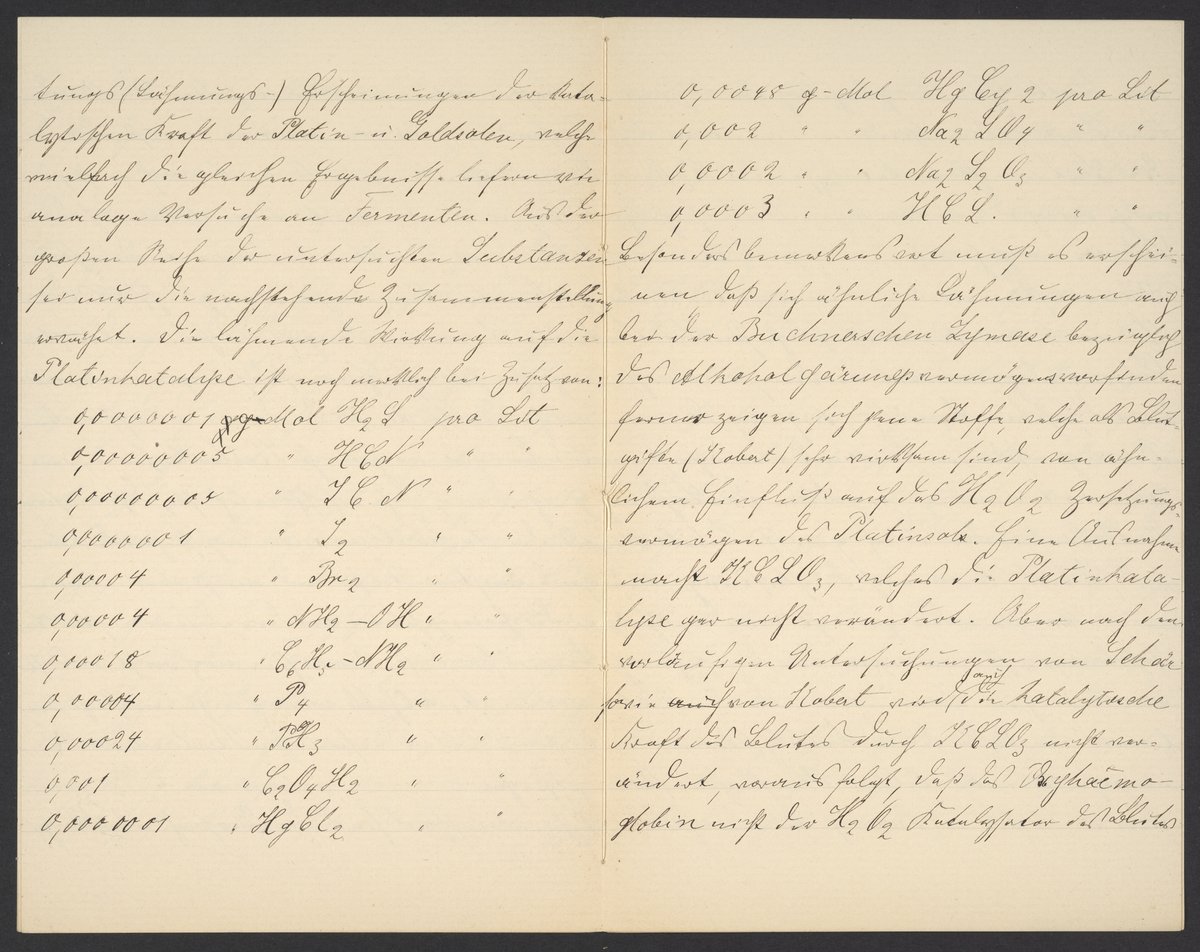 tungs (Lähmungs-) Erscheinungen der kata-
lytischen Kraft der Platin- u. Goldsolen, welche
vielfach die gleichen Ergebnisse liefern wie
analoge Versuche an Fermenten. Aus der
großen Reihe der untersuchten Substanzen
sei nur die nachstehende Zusammenstellung
erwähnt. Die lähmende Wirkung auf die
Platinkatalyse ist noch merklich bei Zusatz von:
0,0000001 g-Mol H2S pro Lit
0,000000005 " HCN " "
0,000000005 " JC N " "
0,0000001 " J2 " "
0,00004 " Br2 " "
0,00004 " NH2-OH " "
0,00018 " C6H5-NH2 " "
0,00004 " P4 " "
0,00024 " PH3 " "
0,001 " C2O4H2 " "
0,0000001 " HgCl2 " "
0,0048 g-Mol HgCy2 pro Lit
0,002 " " Na2SO4 " "
0,0002 " " Na2S2O3 " "
0,0003 " " HCL. " "
Besonders bemerkenswert muß es erschei-
nen daß sich ähnliche Lähmungen auch
bei der Buchnerschen Zymase bezüglich
des Alkoholgärungsvermögens vorfinden
ferner zeigen sich jene Stoffe, welche als Blut-
gifte (Kobert) sehr wirksam sind, von ähn-
lichem Einfluß auf das H2O2 Zersetzungs-
vermögen des Platinsols. Eine Ausnahme
macht KCLO3, welches die Platinkata-
lyse gar nicht verändert. Aber nach den
vorläufigen Untersuchungen von Schär
sowie auch von Kobert wird auch die katalytische
Kraft des Blutes durch KCLO3 nicht ver-
ändert, woraus folgt, daß das Oxyhaemo-
globin nicht der H2O2 Katalysator des Blutes